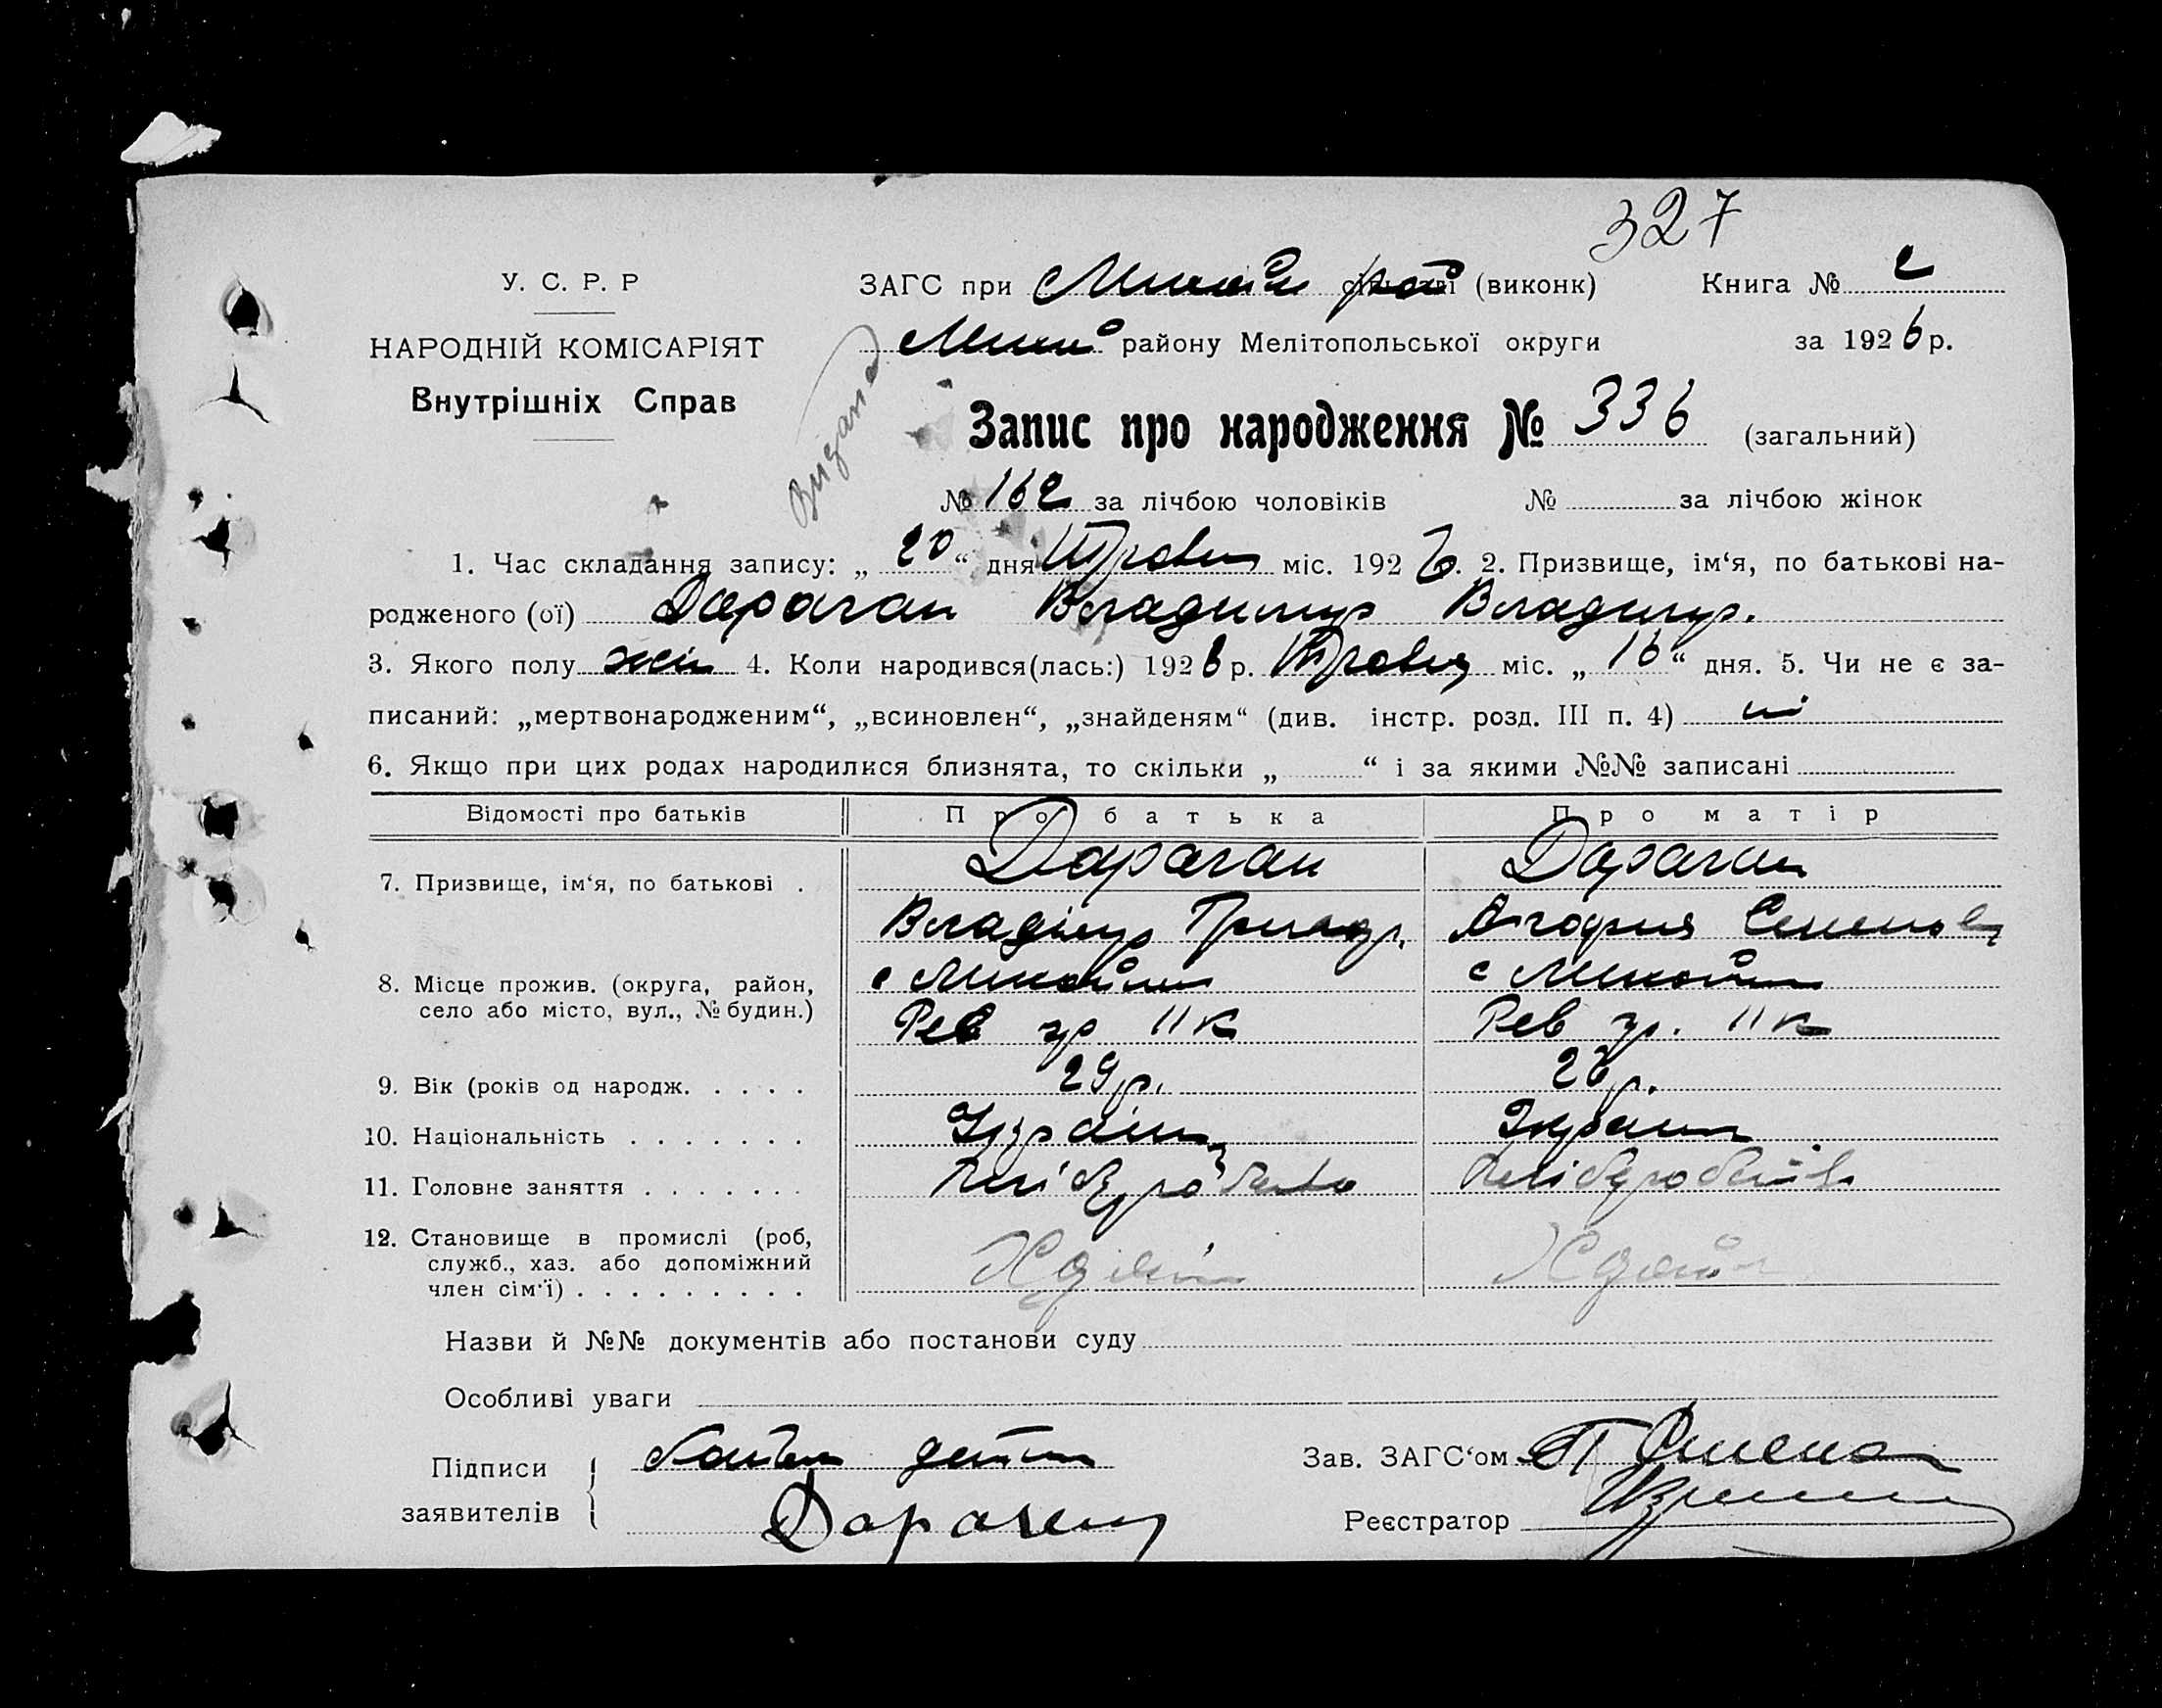 327
У. С. Р. Р
НАРОДНІЙ КОМІСАРІЯТ
Внутрішніх Справ
Видана
ЗАГС при (виконк) Книга № 2
району Мелітопольської округи за 1926 р.
Запис про народження № 336 (загальний)
№ 162 за лічбою чоловіків № за лічбою жінок
1. Час складання запису: „ 20 “ дня Травня міс. 1926. 2. Призвище, ім‘я, по батькові на-
родженого (ої) Дараган Владимир Владимир.
3. Якого полу 4. Коли народився(лась:) 1926 р. Травня міс. „ 16 “ дня. 5. Чи не є за-
писаний: „мертвонародженим“, „всиновлен“, „знайденям“ (див. інстр. розд. III п. 4) ні
6. Якщо при цих родах народилися близнята, то скільки „ “ і за якими №№ записані
Відомості про батьків Про батька Про матір
7. Призвище, ім‘я, по батькові . Дараган Дараган
Владімир Агофия Семенов
8. Місце прожив. (округа, район,
село або місто, вул., № будин.)
с с
Рев гр 11 к Рев гр. 11 к
9. Вік (років од народж. . . . . 29 р. 26 р.
10. Національність . . . . . . .
11. Головне заняття . . . . . . . Хліборобство
12. Становище в промислі (роб,
служб., хаз. або допоміжний
член сім‘ї) . . . . . . . . .
Назви й №№ документів або постанови суду
Особливі уваги
Підписи
заявителів
Дараган
Зав. ЗАГС‘ом
Реєстратор